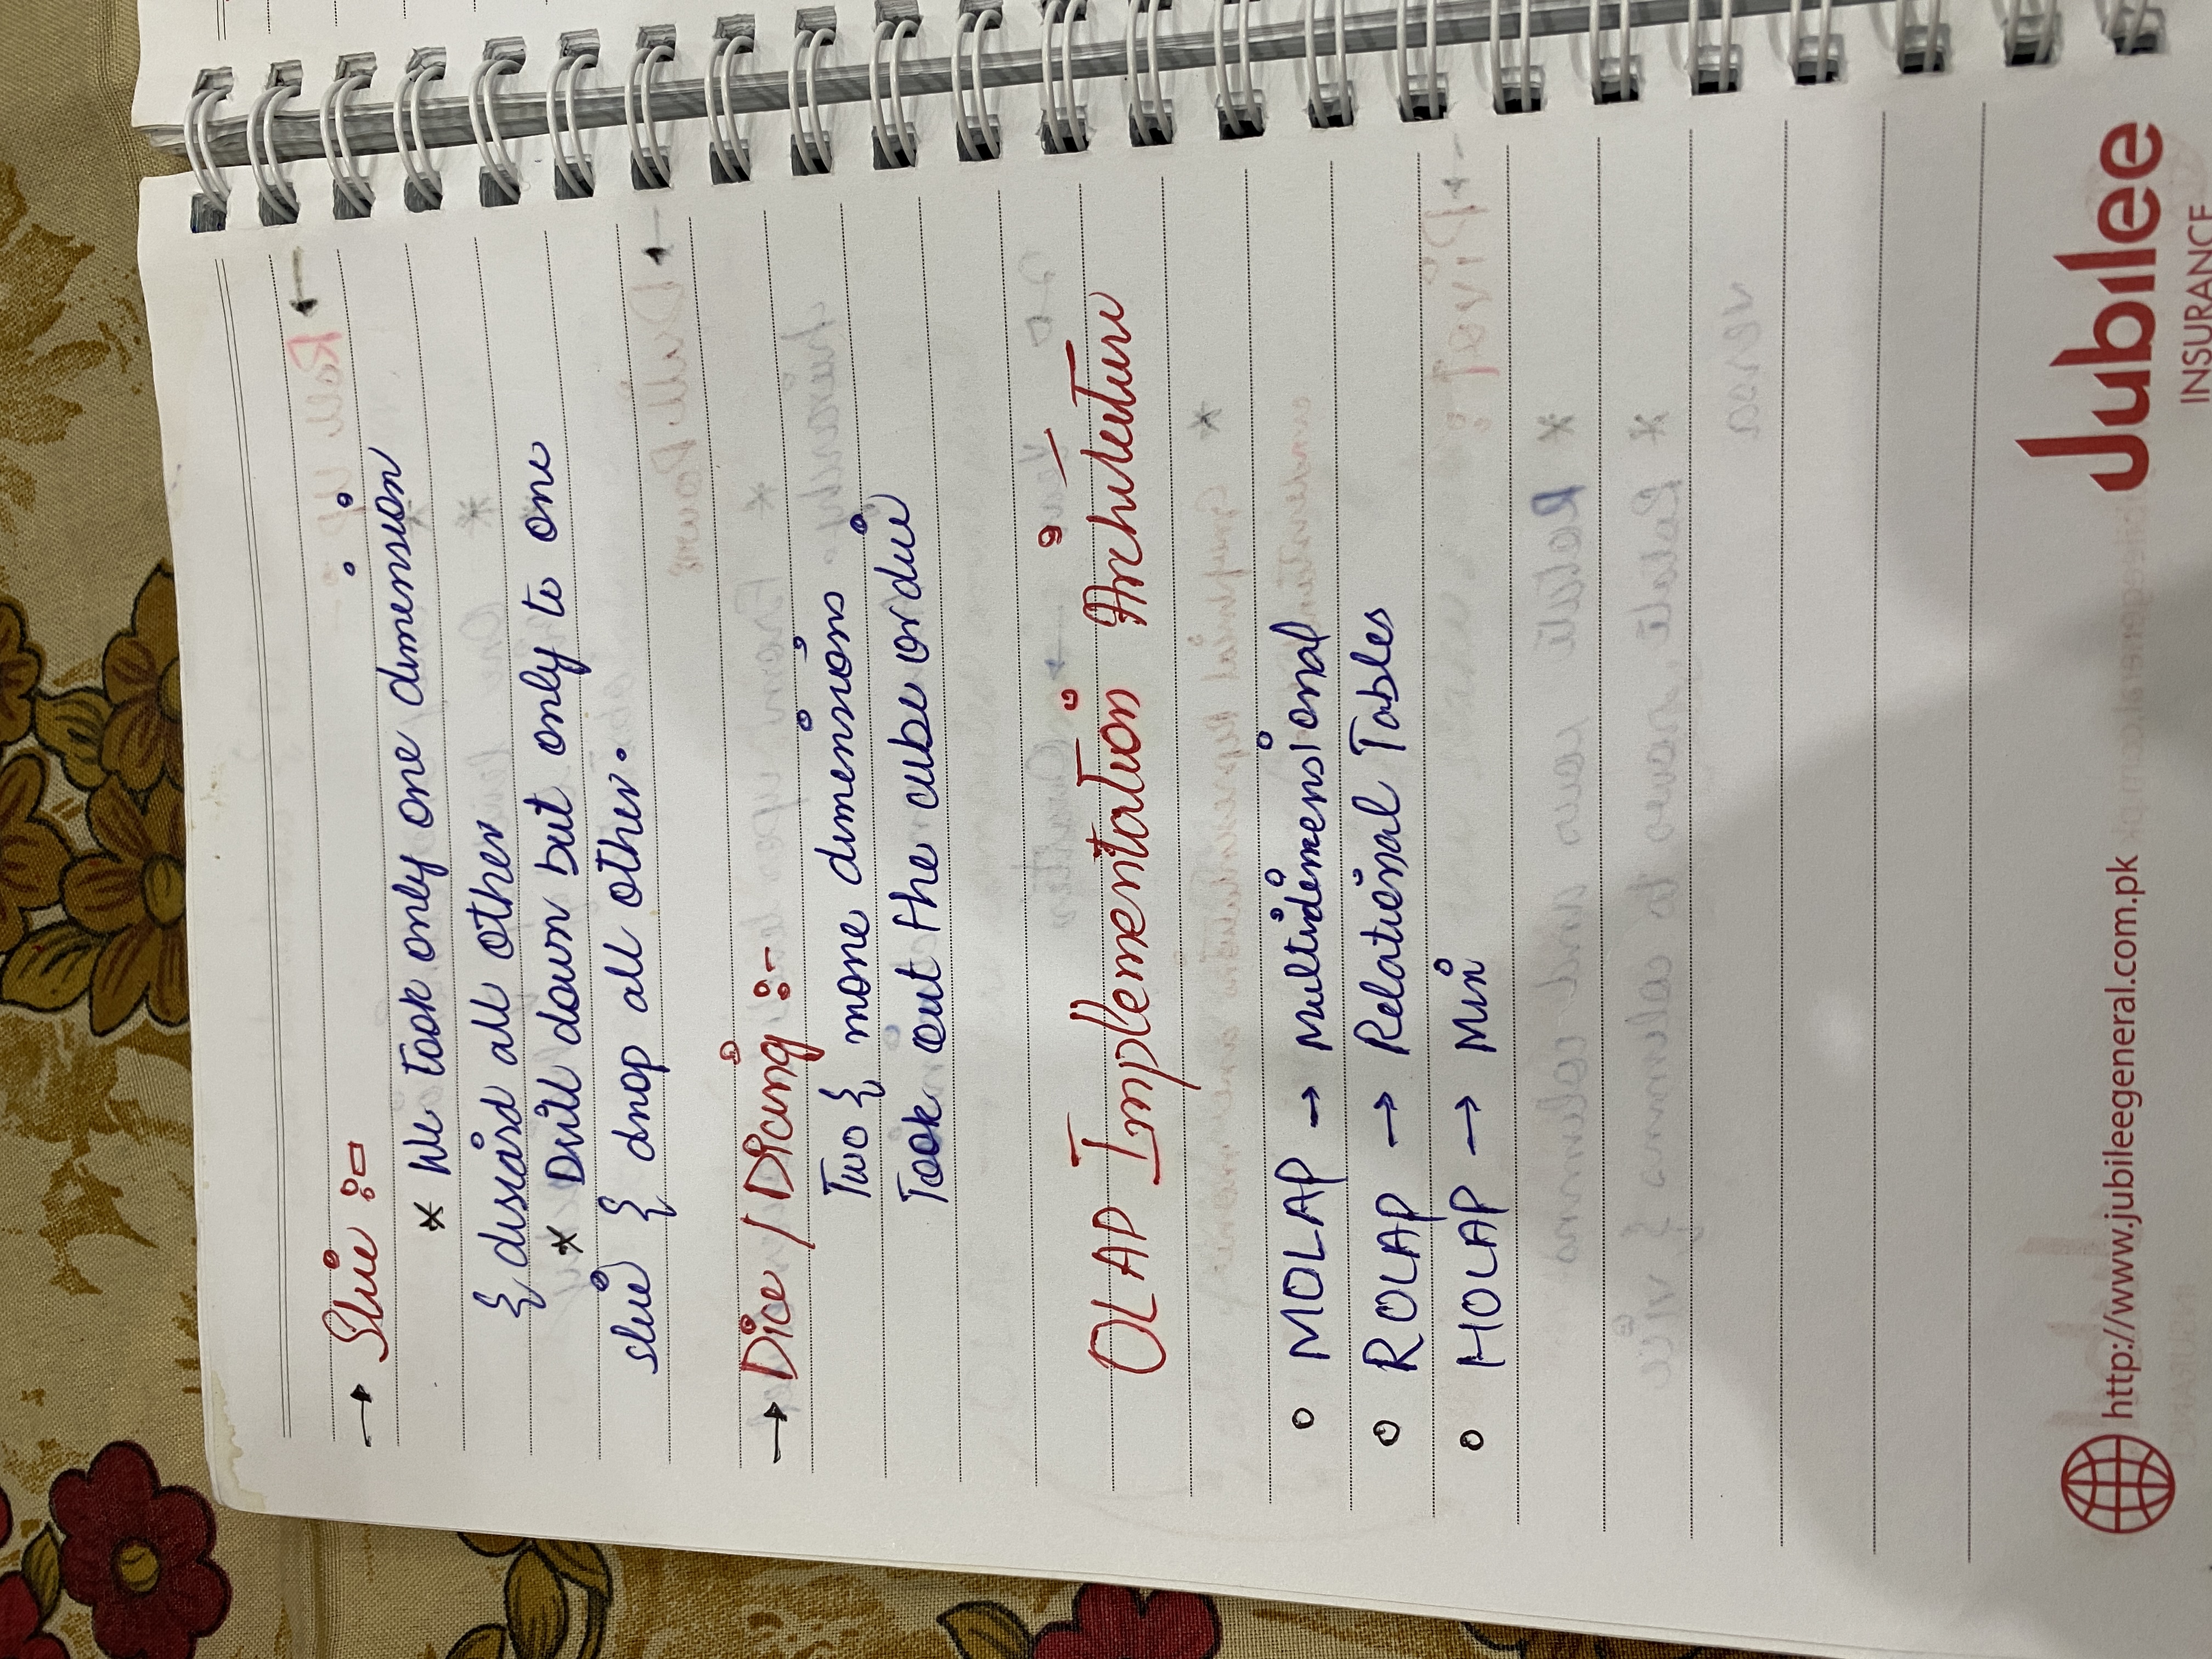 → Slice :-
* We took only one dimension
& discard all other
* Drill down but only to one
slice & drop all other.
→ Dice / Dicing :-
Two & more dimensions
Took out the cube or dice
OLAP Implementation Architecture
○ MOLAP → Multidimensional
○ ROLAP → Relational Tables
○ HOLAP → Mix
http://www.jubileegeneral.com.pk
Jubilee
INSURANCE